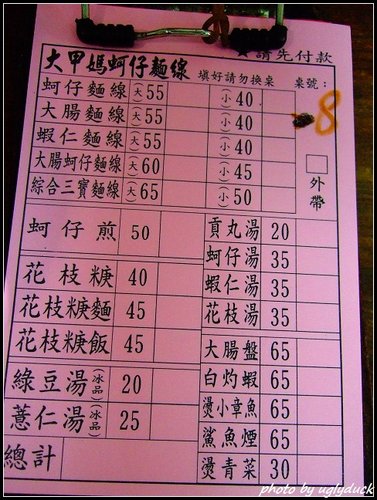 請先付款
大甲媽蚵仔麵線 填好請勿換桌 桌號：
8
蚵仔麵線(大)55 (小)40
大腸麵線(大)55 (小)40
蝦仁麵線(大)55 (小)40
大腸蚵仔麵線(大)60 (小)45
綜合三寶麵線(大)65 (小)50
外帶
蚵仔煎 50
花枝糖 40
花枝糖麵 45
花枝糖飯 45
綠豆湯(冰品) 20
薏仁湯(冰品) 25
總計
貢丸湯 20
蚵仔湯 35
蝦仁湯 35
花枝湯 35
大腸盤 65
白灼蝦 65
燙小章魚 65
鯊魚煙 65
燙青菜 30
photo by uglyduck